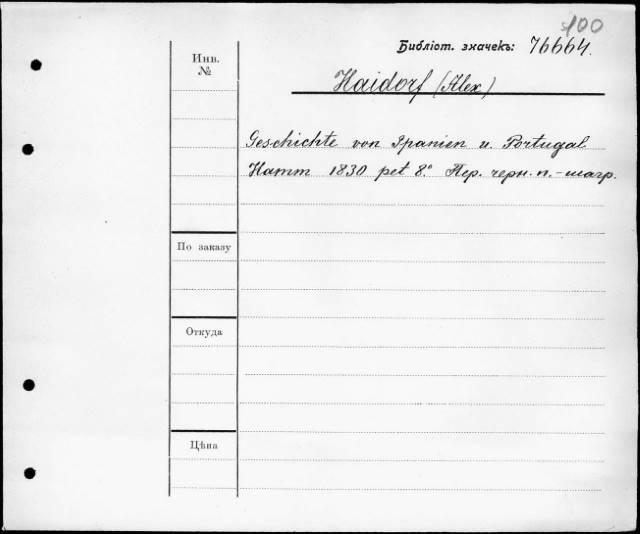 100
Библіот. значекъ: 76664.
Инв. №
Haidorf (Alex)
Geschichte von Spanien u. Portugal
Hamm 1830 pet 8.° Пер. черн. п.-шагр.
По заказу
Откуда
Цѣна